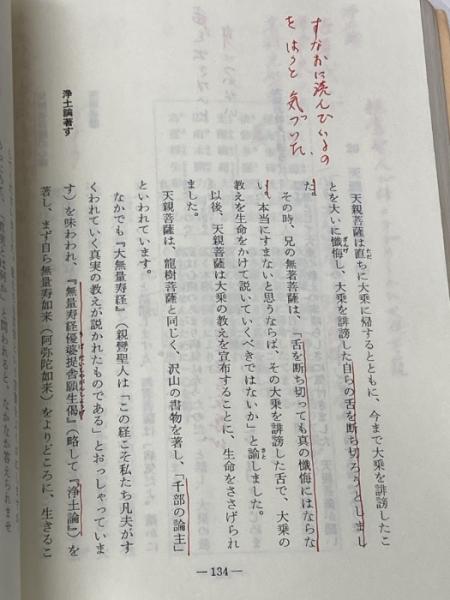 すなおに読んでいるの
を はっと 気づいた
天親菩薩は直ちに大乗に帰するとともに、今まで大乗を誹謗したこ
とを大いに懺悔し、大乗を誹謗した自らの舌を断ち切ろうとしまし
た。
その時、兄の無著菩薩は、「舌を断ち切っても真の懺悔にはならな
い。本当にすまないと思うならば、その大乗を誹謗した舌で、大乗の
教えを生命をかけて説いていくべきではないか」と諭しました。
以後、天親菩薩は大乗の教えを宣布することに、生命をささげられ
ました。
天親菩薩は、龍樹菩薩と同じく、沢山の書物を著し、「千部の論主」
といわれています。
浄土論著す
なかでも『大無量寿経』(親鸞聖人は「この経こそ私たち凡夫がす
くわれていく真実の教えが説かれたものである」とおっしゃっていま
す)を味わわれ、『無量寿経優婆提舎願生偈』(略して『浄土論』)を
著し、まず自ら無量寿如来(阿弥陀如来)をよりどころに、生きるこ
—134—